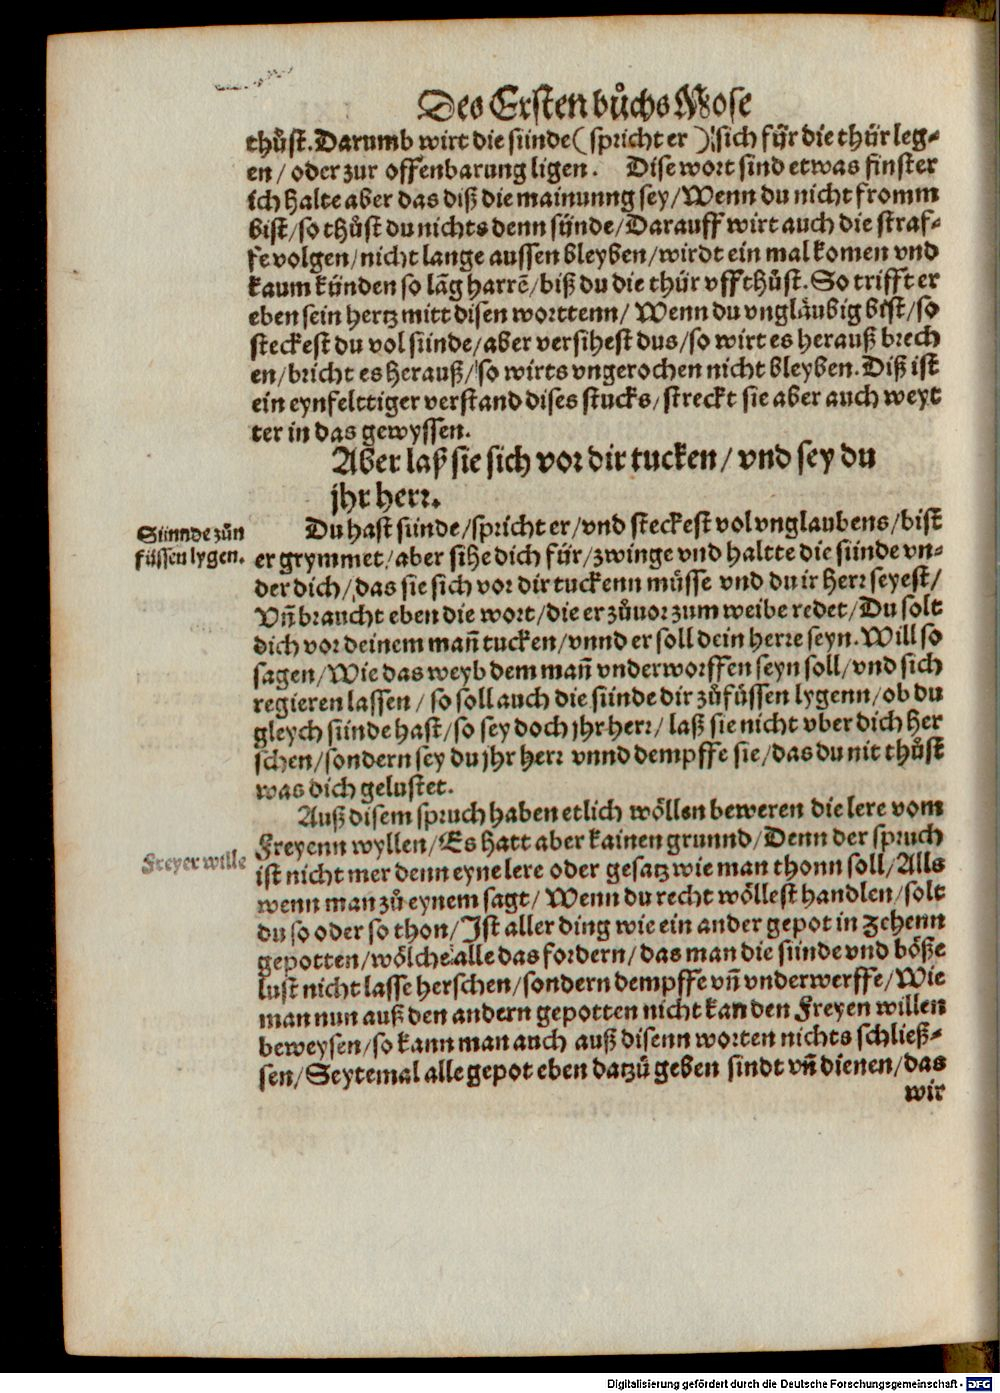 Des Ersten bůchs Mose
thůst. Darumb wirt die sünde ( spricht er ) sich für die thür leg-
en / oder zur offenbarung ligen. Dise wort sind etwas finster
ich halte aber das diß die mainunng sey / Wenn du nicht fromm
bist / so thůst du nichts denn sünde / Darauff wirt auch die straf-
fe volgen / nicht lange aussen bleyben / wirdt ein mal komen vnd
kaum künden so lāg harrē / biß du die thür vff thůst. So trifft er
eben sein hertz mitt disen worttenn / Wenn du vngläubig bist / so
steckest du vol sünde / aber versihest dus / so wirt es herauß brech
en / bricht es herauß / so wirts vngerochen nicht bleyben. Diß ist
ein eynfelttiger verstand dises stucks / streckt sie aber auch weyt
ter in das gewyssen.
Aber laß sie sich vor dir tucken / vnd sey du
jhr herr.
Sünnde zůn
füssen lygen.
Du hast sünde / spricht er / vnd steckest vol vnglaubens / bist
er grymmet / aber sihe dich für / zwinge vnd haltte die sünde vn-
der dich / das sie sich vor dir tuckenn müsse vnd du ir herr seyest /
Vn̄ braucht eben die wort / die er zůuor zum weibe redet / Du solt
dich vor deinem man̄ tucken / vnnd er soll dein herre seyn. Will so
sagen / Wie das weyb dem man̄ vnderworffen seyn soll / vnd sich
regieren lassen / so soll auch die sünde dir zůfüssen lygenn / ob du
gleych sünde hast / so sey doch jhr herr / laß sie nicht vber dich her
schen / sondern sey du jhr herr vnnd dempffe sie / das du nit thůst
was dich gelustet.
Auß disem spruch haben etlich wöllen beweren die lere vom
Freyenn wyllen / Es hatt aber kainen grunnd / Denn der spruch
Freyer wille
ist nicht mer denn eyne lere oder gesatz wie man thonn soll / Alls
wenn man zů eynem sagt / Wenn du recht wöllest handlen / solt
du so oder so thon / Ist aller ding wie ein ander gepot in zehenn
gepotten / wölche alle das fordern / das man die sünde vnd böße
lust nicht lasse herschen / sondern dempffe vn̄ vnderwerffe / Wie
man nun auß den andern gepotten nicht kan den Freyen willen
beweysen / so kann man auch auß disenn worten nichts schließ-
sen / Seytemal alle gepot eben datzů geben sindt vn̄ dienen / das
wir
Digitalisierung gefördert durch die Deutsche Forschungsgemeinschaft - DFG